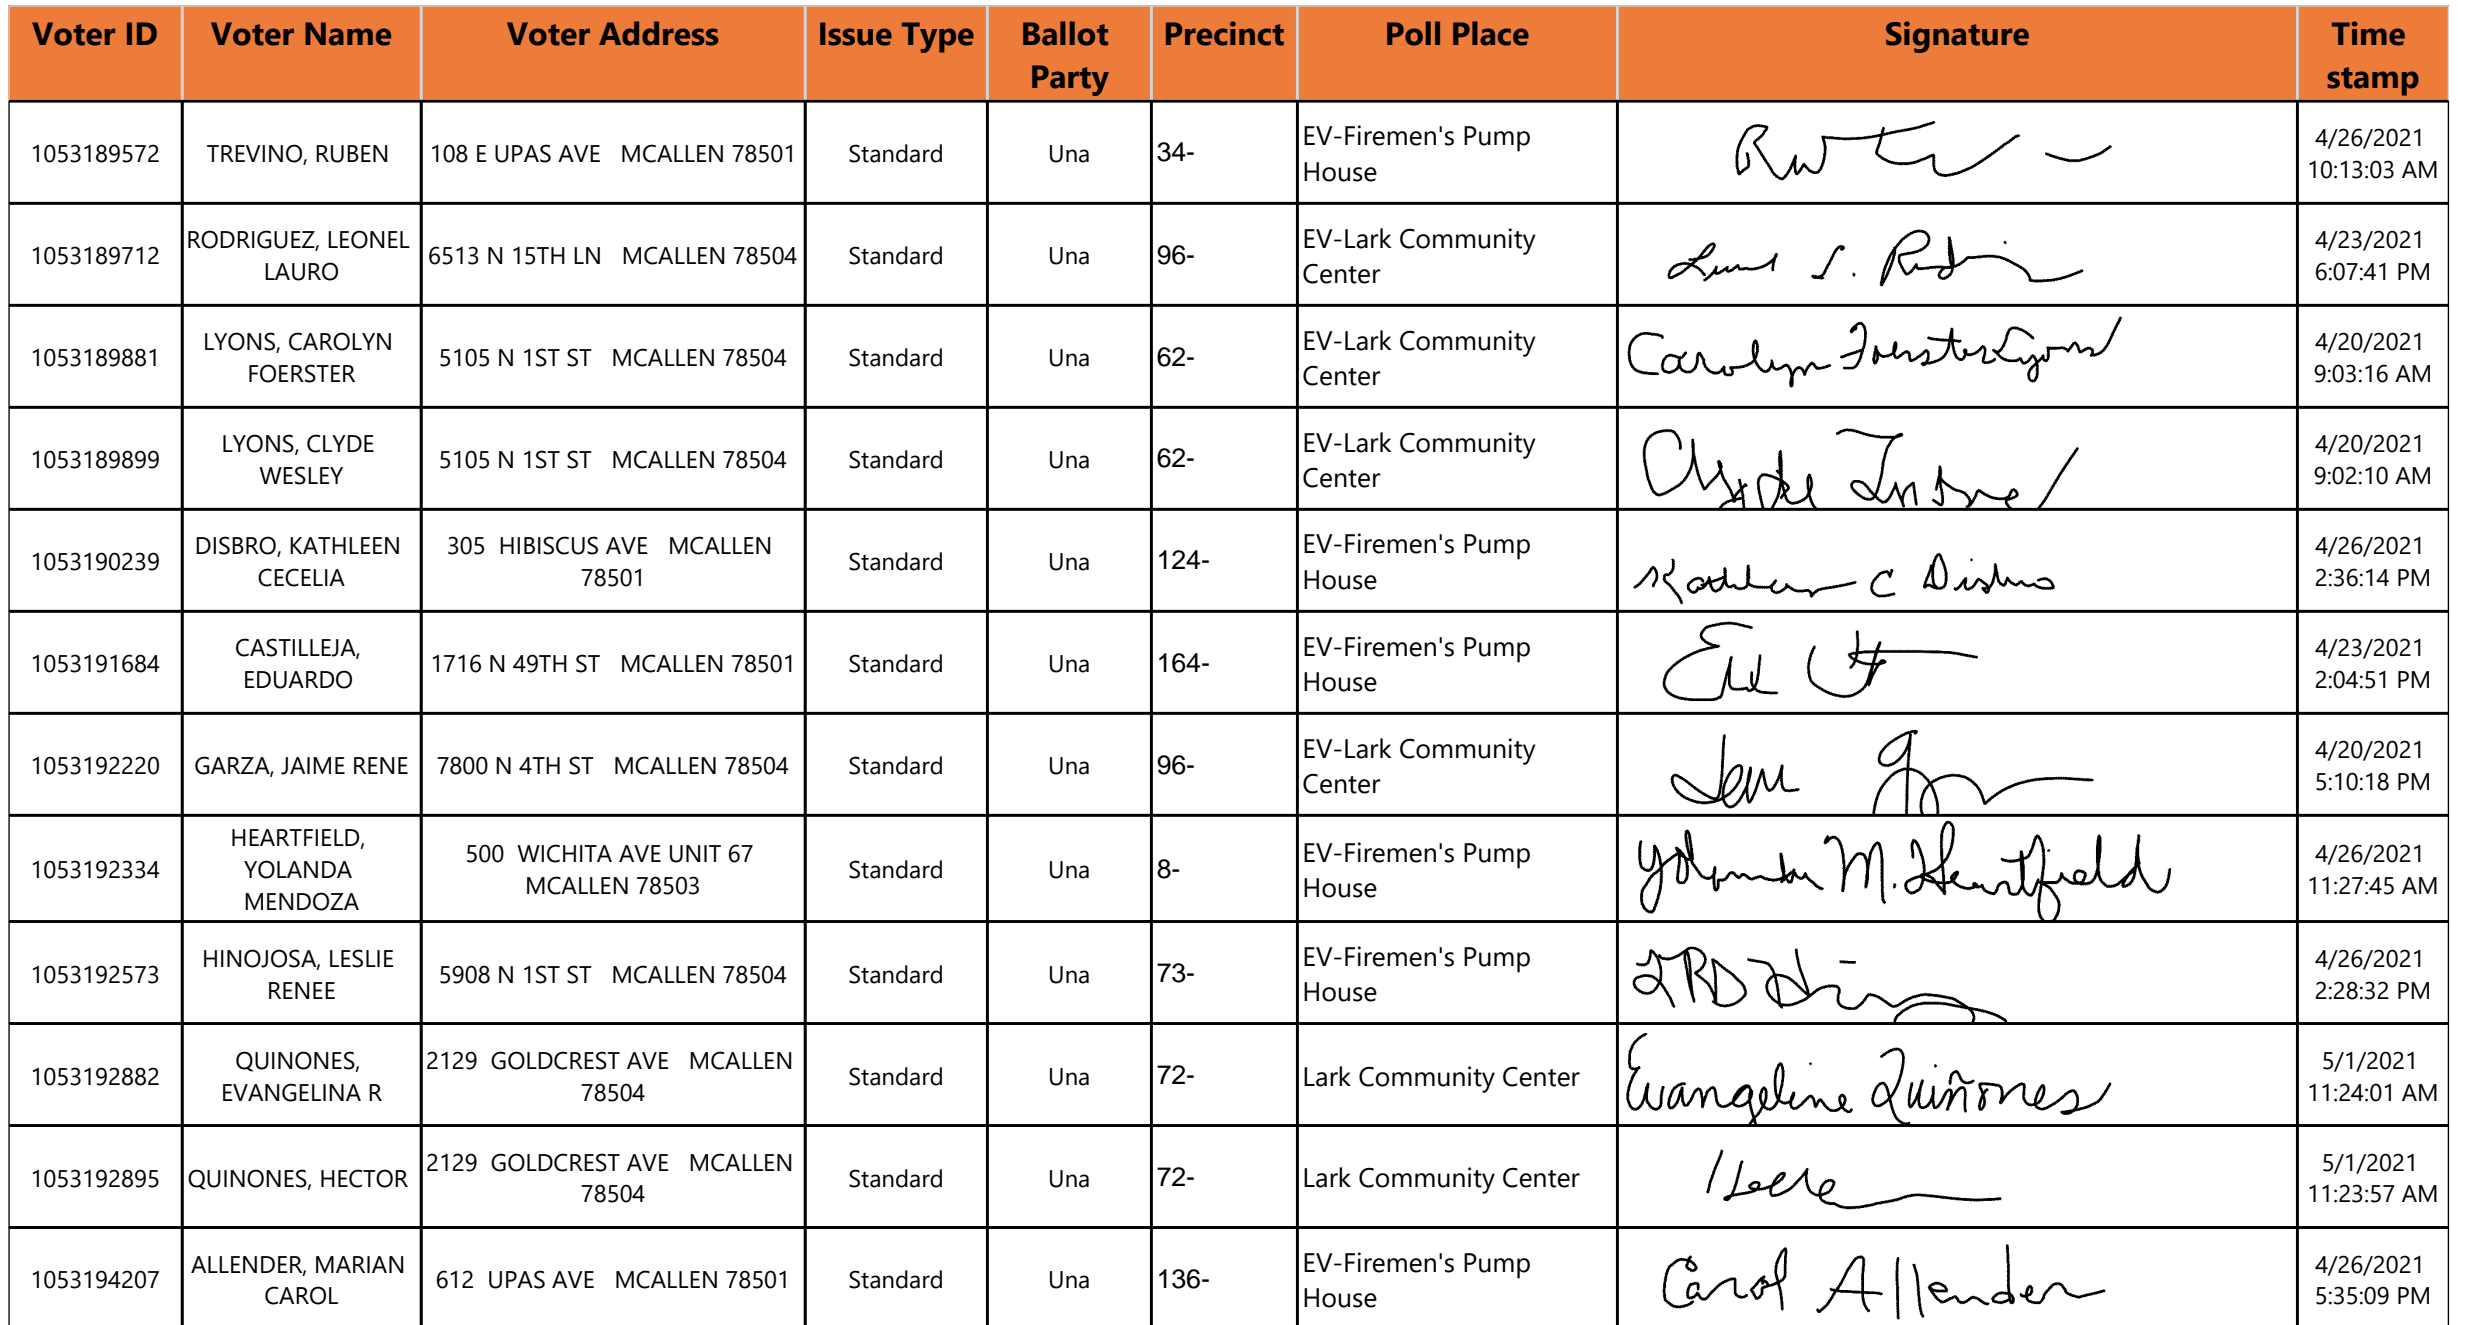 Voter ID Voter Name Voter Address Issue Type Ballot Party Precinct Poll Place Signature Time stamp
1053189572 TREVINO, RUBEN 108 E UPAS AVE MCALLEN 78501 Standard Una 34- EV-Firemen's Pump House 4/26/2021 10:13:03 AM
1053189712 RODRIGUEZ, LEONEL LAURO 6513 N 15TH LN MCALLEN 78504 Standard Una 96- EV-Lark Community Center 4/23/2021 6:07:41 PM
1053189881 LYONS, CAROLYN FOERSTER 5105 N 1ST ST MCALLEN 78504 Standard Una 62- EV-Lark Community Center Carolyn Foerster Lyons 4/20/2021 9:03:16 AM
1053189899 LYONS, CLYDE WESLEY 5105 N 1ST ST MCALLEN 78504 Standard Una 62- EV-Lark Community Center 4/20/2021 9:02:10 AM
1053190239 DISBRO, KATHLEEN CECELIA 305 HIBISCUS AVE MCALLEN 78501 Standard Una 124- EV-Firemen's Pump House Kathleen C Disbro 4/26/2021 2:36:14 PM
1053191684 CASTILLEJA, EDUARDO 1716 N 49TH ST MCALLEN 78501 Standard Una 164- EV-Firemen's Pump House 4/23/2021 2:04:51 PM
1053192220 GARZA, JAIME RENE 7800 N 4TH ST MCALLEN 78504 Standard Una 96- EV-Lark Community Center 4/20/2021 5:10:18 PM
1053192334 HEARTFIELD, YOLANDA MENDOZA 500 WICHITA AVE UNIT 67 MCALLEN 78503 Standard Una 8- EV-Firemen's Pump House Yolanda M. Heartfield 4/26/2021 11:27:45 AM
1053192573 HINOJOSA, LESLIE RENEE 5908 N 1ST ST MCALLEN 78504 Standard Una 73- EV-Firemen's Pump House 4/26/2021 2:28:32 PM
1053192882 QUINONES, EVANGELINA R 2129 GOLDCREST AVE MCALLEN 78504 Standard Una 72- Lark Community Center Evangeline Quiñones 5/1/2021 11:24:01 AM
1053192895 QUINONES, HECTOR 2129 GOLDCREST AVE MCALLEN 78504 Standard Una 72- Lark Community Center 5/1/2021 11:23:57 AM
1053194207 ALLENDER, MARIAN CAROL 612 UPAS AVE MCALLEN 78501 Standard Una 136- EV-Firemen's Pump House Carol Allender 4/26/2021 5:35:09 PM